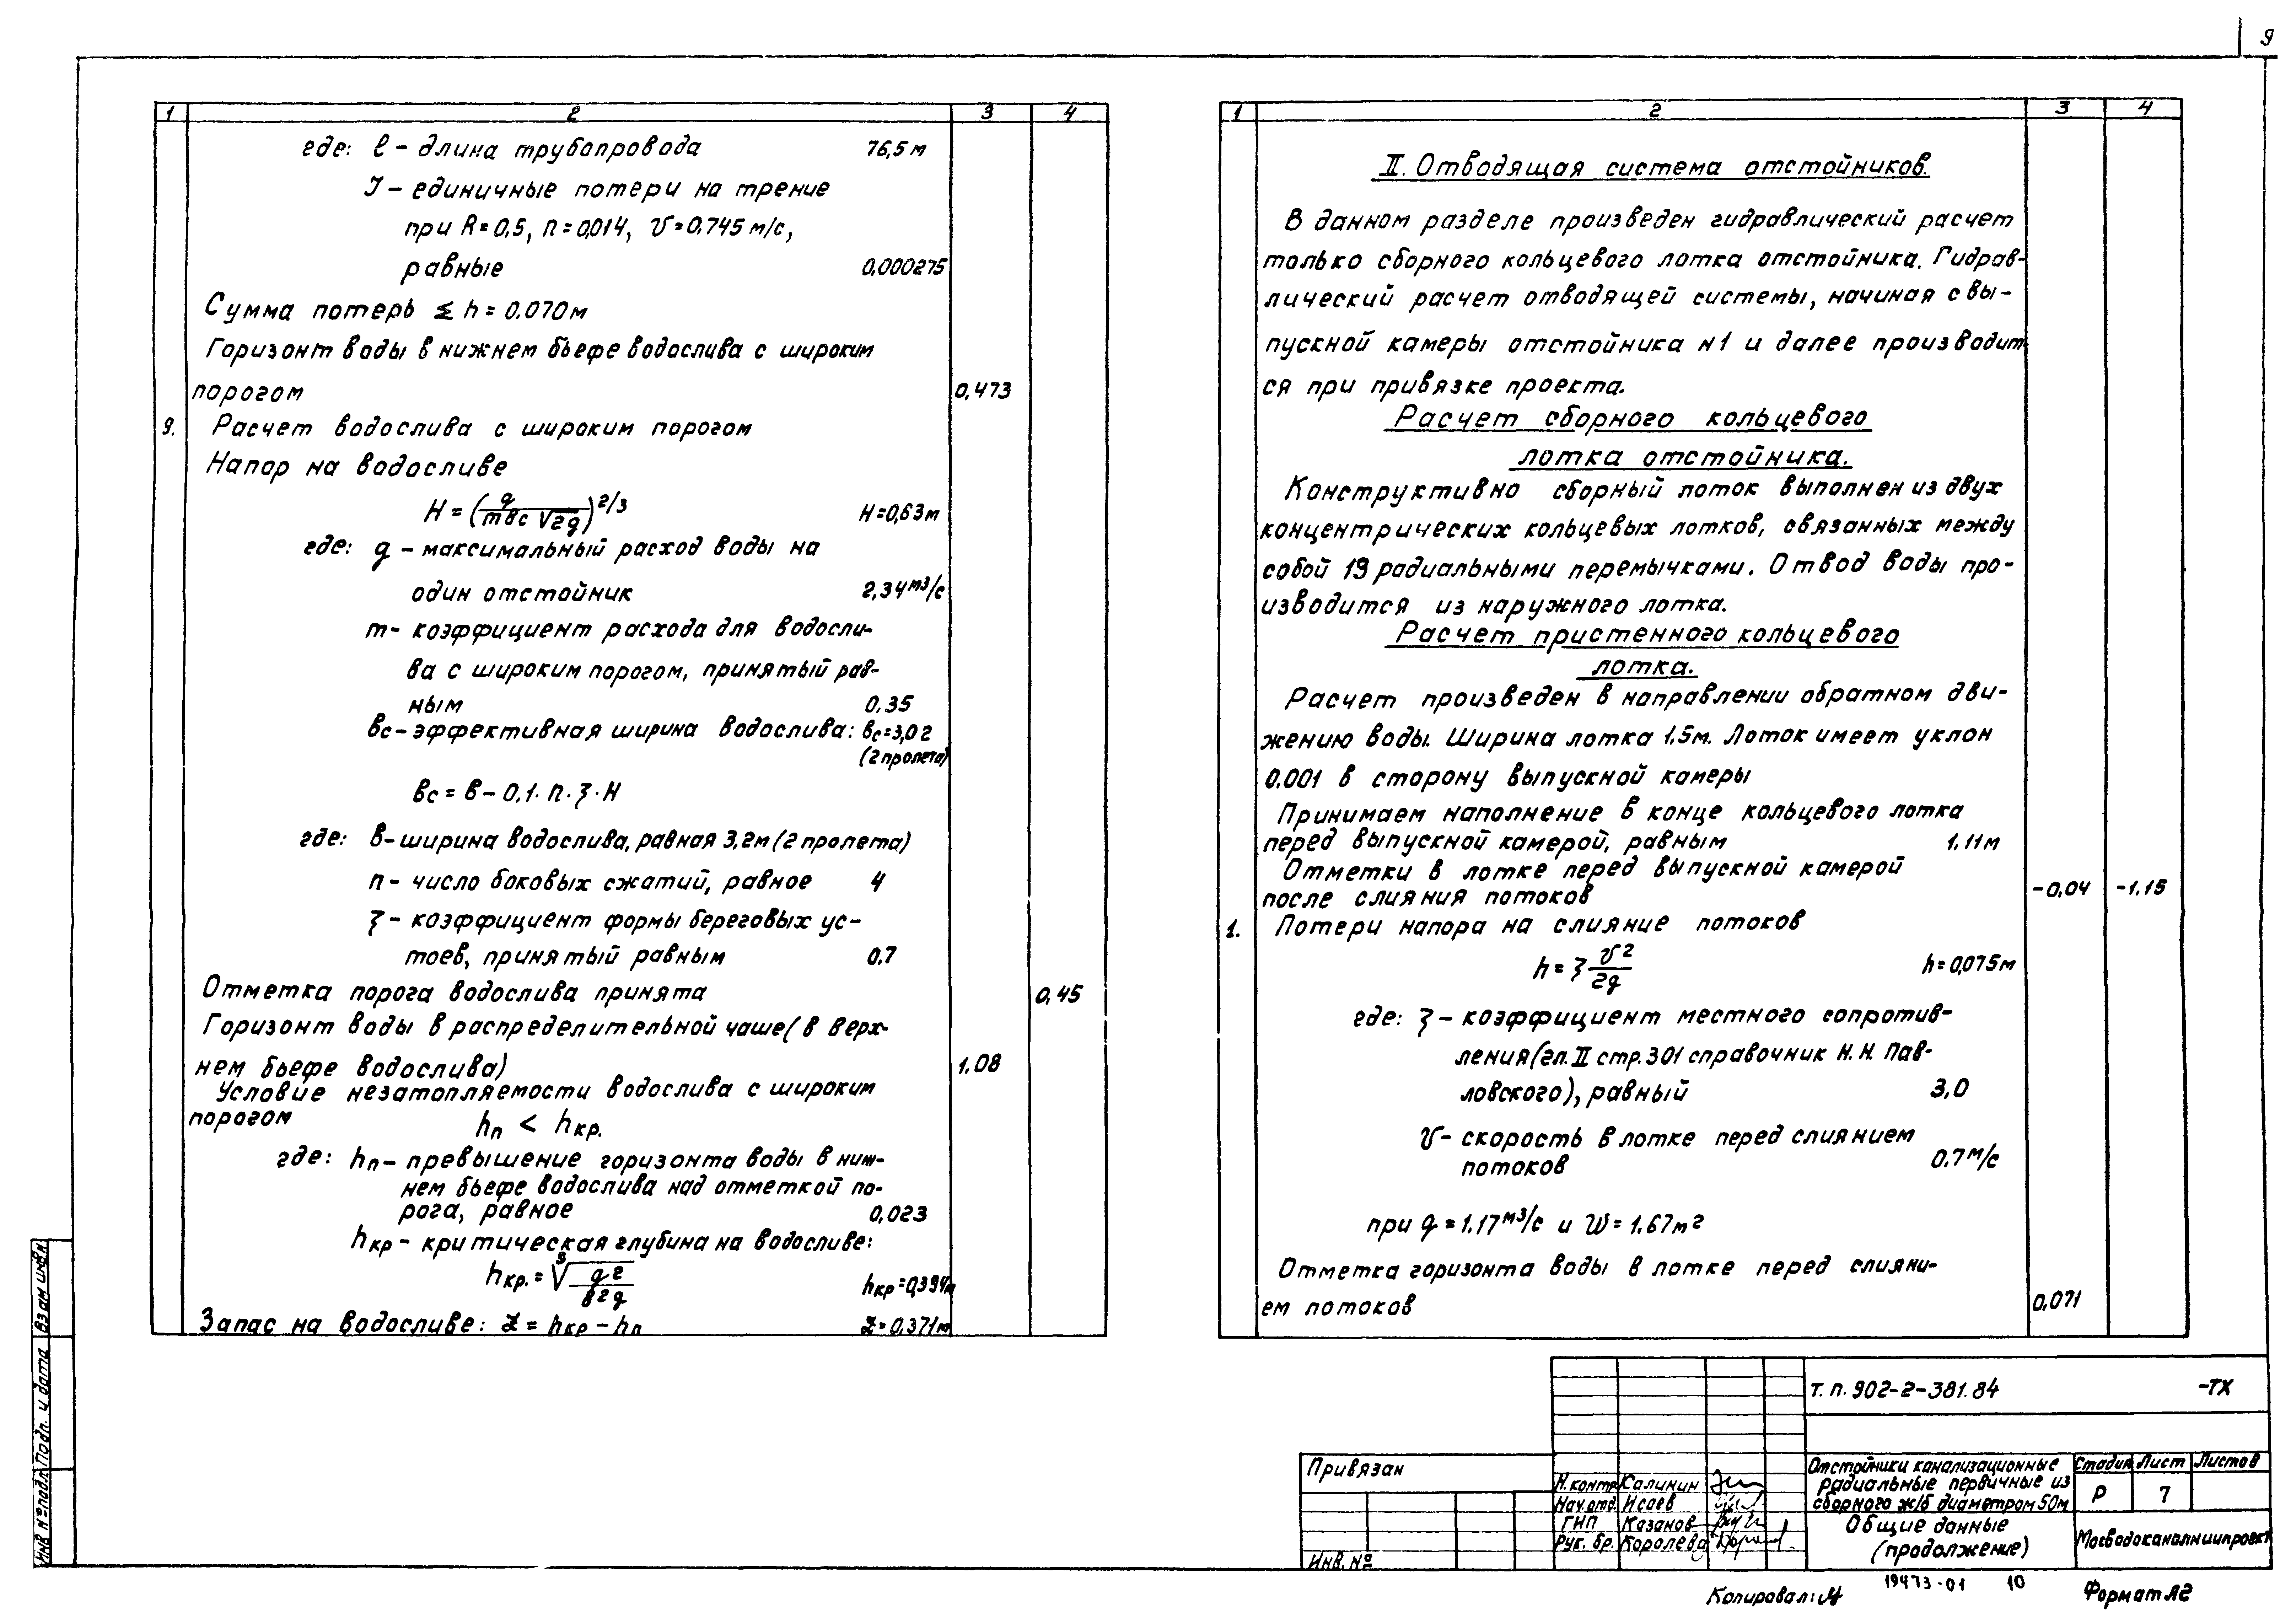 9
1 2 3 4
где: ℓ – длина трубопровода 76,5 м
J – единичные потери на трение
при R = 0,5, n = 0,014, v = 0.745 м/с,
равные 0,000275
Сумма потерь Σ h = 0.070 м
Горизонт воды в нижнем бьефе водослива с широким
порогом 0,473
9. Расчет водослива с широким порогом
Напор на водосливе
H = (q / mвс √2g)^2/3 H = 0,63 м
где: q – максимальный расход воды на
один отстойник 2,34 м³/с
m – коэффициент расхода для водосли-
ва с широким порогом, принятый рав-
ным 0,35
вс – эффективная ширина водослива: вс = 3,02
(2 пролета)
вс = в – 0,1 · n · ξ · H
где: в – ширина водослива, равная 3,2м (2 пролета)
n – число боковых сжатий, равное 4
ξ – коэффициент формы береговых ус-
тоев, принятый равным 0.7
Отметка порога водослива принята 0,45
Горизонт воды в распределительной чаше (в верх-
нем бьефе водослива) 1,08
Условие незатопляемости водослива с широким
порогом hп < hкр.
где: hп – превышение горизонта воды в ниж-
нем бьефе водослива над отметкой по-
рога, равное 0,023
hкр – критическая глубина на водосливе:
hкр. = ∛(q²/в²g) hкр = 0,394м
Запас на водосливе: Z = hкр – hп Z = 0,371м
1 2 3 4
II. Отводящая система отстойников.
В данном разделе произведен гидравлический расчет
только сборного кольцевого лотка отстойника. Гидрав-
лический расчет отводящей системы, начиная с вы-
пускной камеры отстойника №1 и далее производит
ся при привязке проекта.
Расчет сборного кольцевого
лотка отстойника.
Конструктивно сборный поток выполнен из двух
концентрических кольцевых лотков, связанных между
собой 19 радиальными перемычками. Отвод воды про-
изводится из наружного лотка.
Расчет пристенного кольцевого
лотка.
Расчет произведен в направлении обратном дви-
жению воды. Ширина лотка 1,5м. Лоток имеет уклон
0.001 в сторону выпускной камеры
Принимаем наполнение в конце кольцевого лотка
перед выпускной камерой, равным 1.11 м
Отметки в лотке перед выпускной камерой
после слияния потоков -0,04 -1,15
1. Потери напора на слияние потоков
h = ξ v²/2g h = 0,075 м
где: ξ – коэффициент местного сопротив-
ления (гл. II стр. 301 справочник Н. Н. Пав-
ловского), равный 3,0
v – скорость в лотке перед слиянием
потоков 0.7 м/с
при q = 1.17 м³/с и W = 1.67 м²
Отметка горизонта воды в лотке перед слияни-
ем потоков 0,071
Инв № подл Подп. и дата Взам инв н
т. п. 902-2-381.84 -ТХ
Привязан
Инв. №
Н. контр Калинин
Нач. отд. Исаев
ГИП Казанов
Рук. бр. Королева
Отстойники канализационные
радиальные первичные из
сборного ж/б диаметром 50м
Стадия Лист Листов
Р 7
Общие данные
(продолжение)
Мосводоканалниипроект
Копировал:
19473-01 10
Формат А2